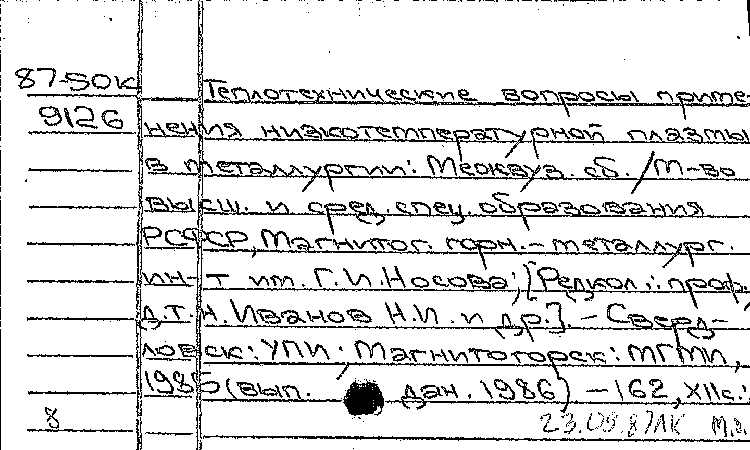 87-50К Теплотехнические вопросы приме-
9126 нения низкотемпературной плазмы
в металлургии: Межвуз. сб. / М-во
высш. и сред. спец. образования
РСФСР, Магнитог. горн.-металлург.
ин-т им. Г.И. Носова; [Редкол.: проф.
д.т.н. Иванов Н.И. и др.]. - Сверд-
ловск: УПИ: Магнитогорск: МГМИ,
1985 (вып. дан. 1986) - 162, XII с.:
8 23.09.87 ЛК